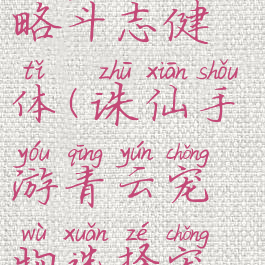 略斗志健
tǐ zhū xiān shǒu
体(诛仙手
yóu qīng yún chǒng
游青云宠
wù xuǎn zé chǒng
物选择宠